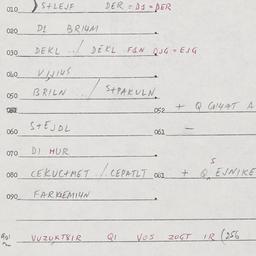 010 S+LEJF DER = D1 = DER
020 D1 BRIUM
030 DEKL / DEKL FGN DJG = EJG
040 VIJIUS
050 BRILN / S+PAKULN
052 + Q GIUAT A
060 S+EJDL 061 —
070 D1 HUR
080 CEKUCHMET / CEPATLT 081 + Q EJNIKE
S
090 FARKLEMIUN
VUZUKTSIR Q1 VOS ZOGT IR (256